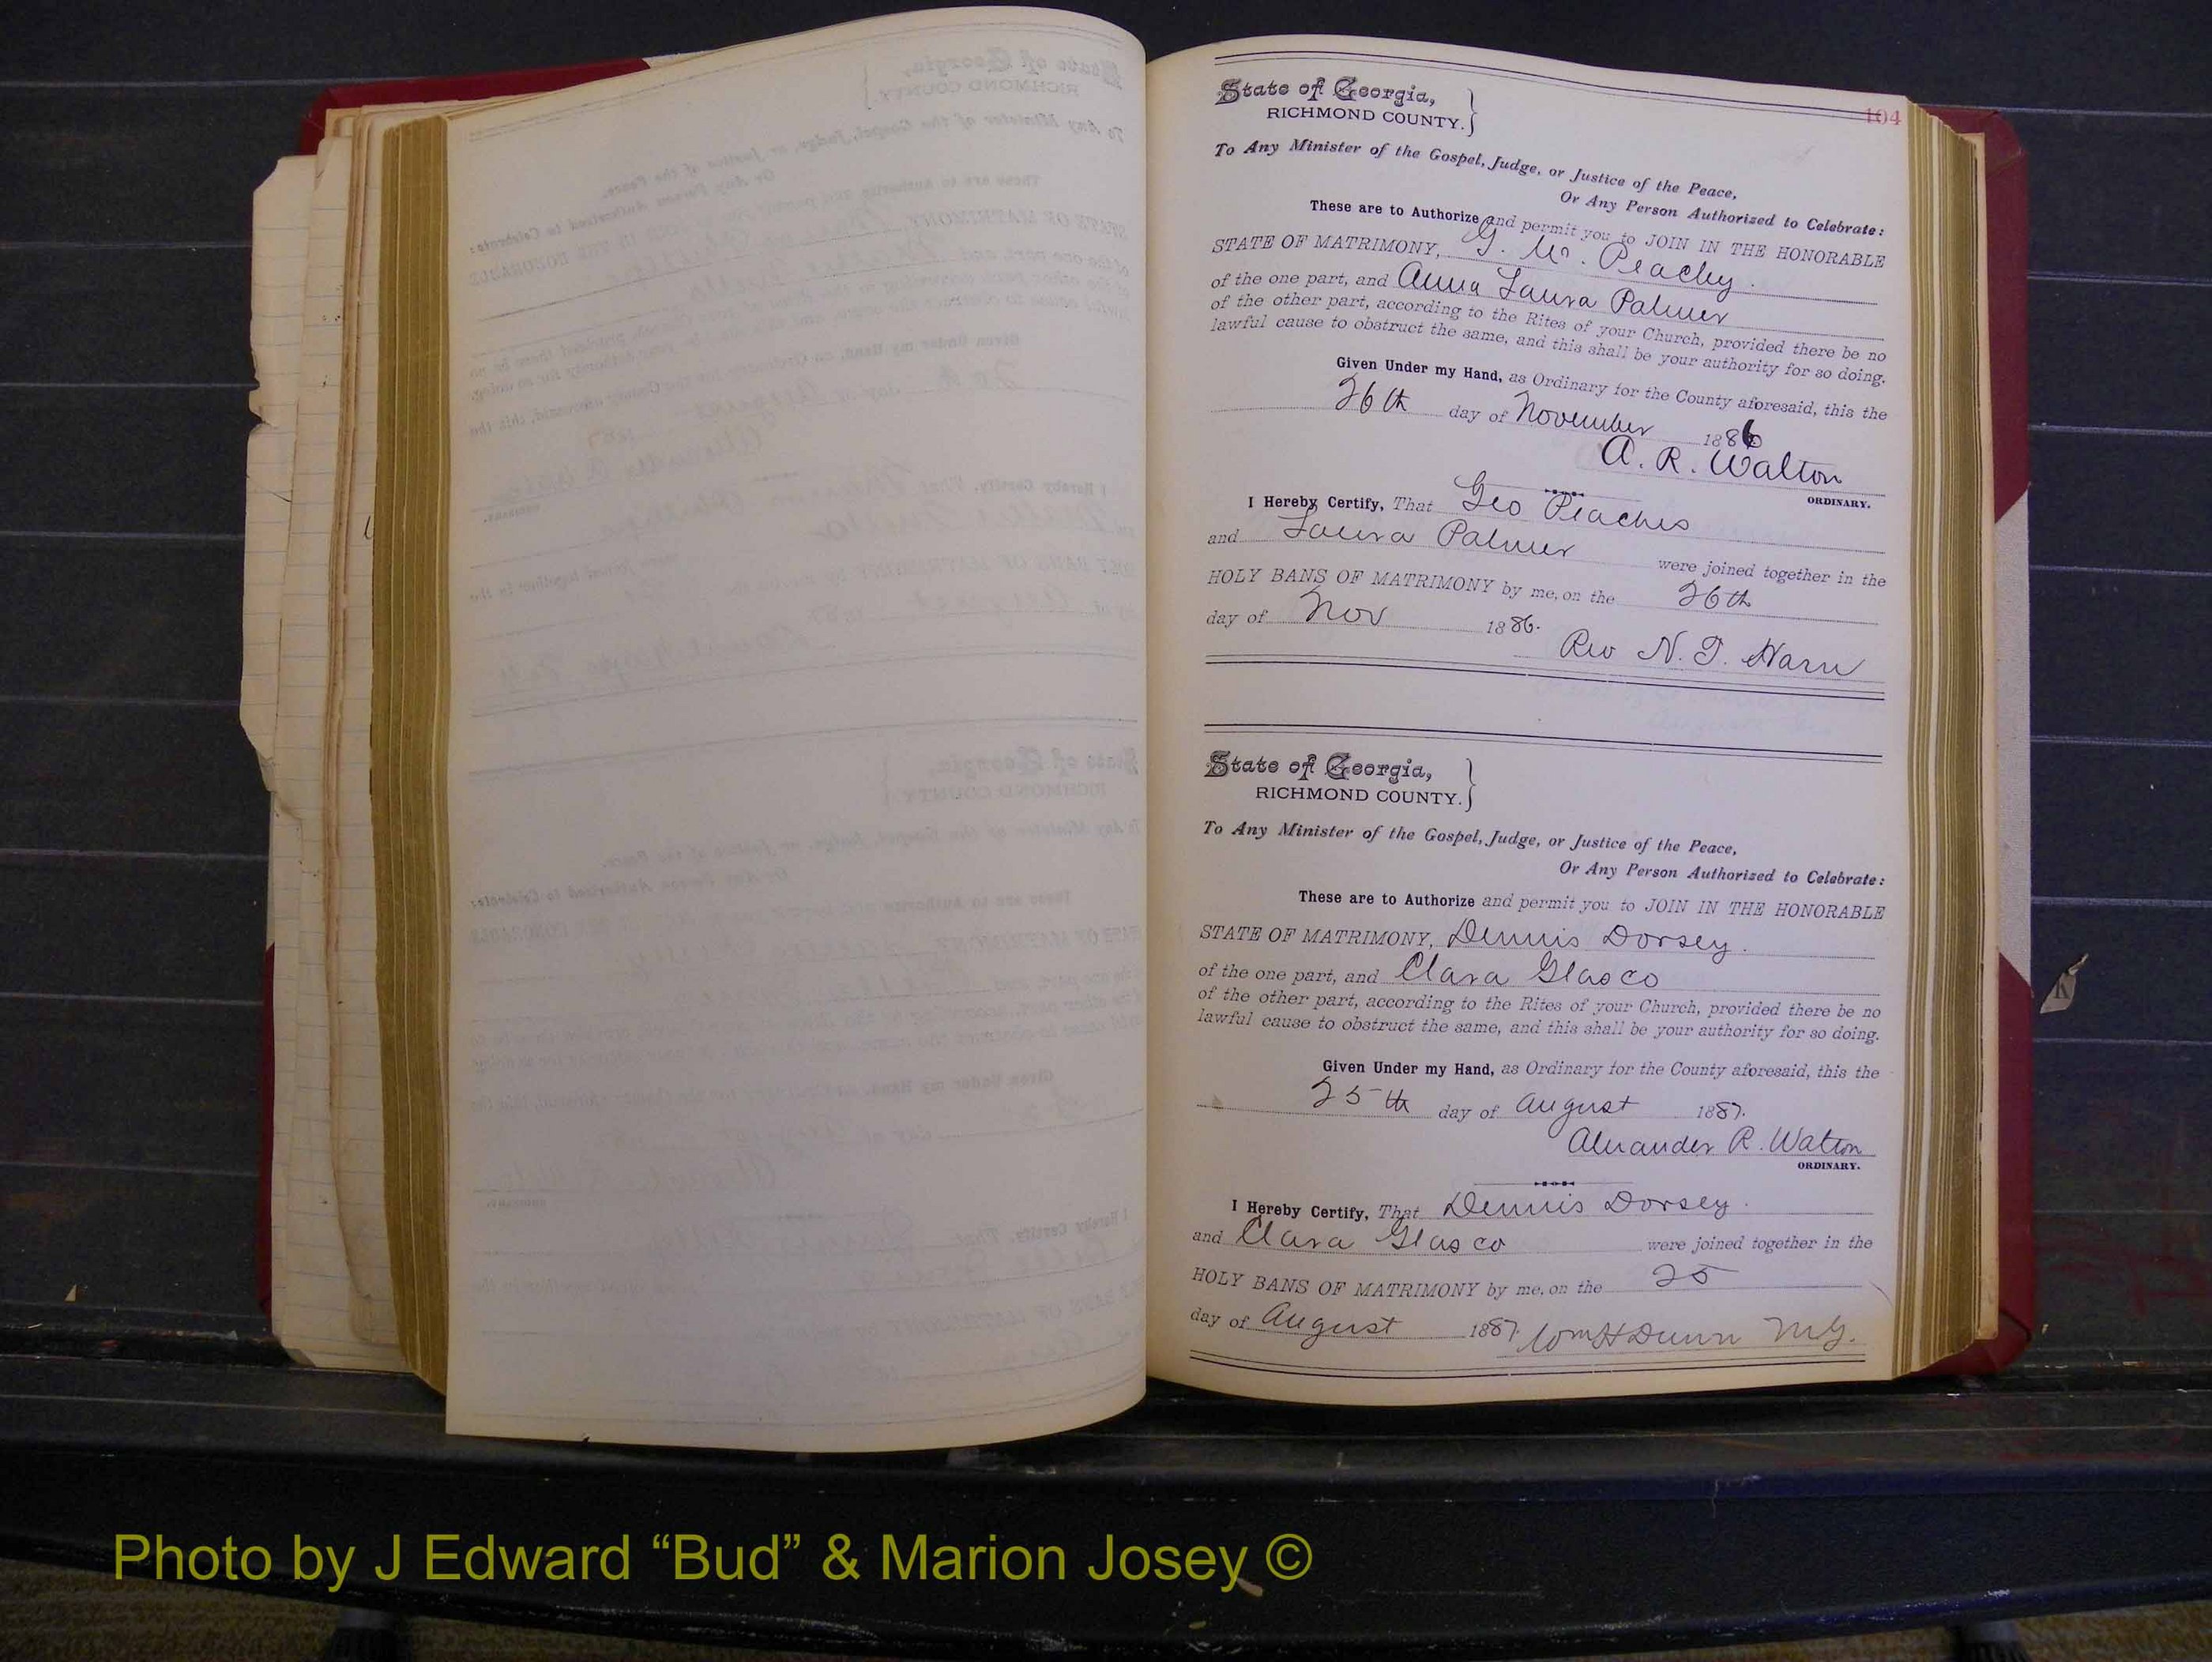 104
State of Georgia,
RICHMOND COUNTY.
To Any Minister of the Gospel, Judge, or Justice of the Peace,
Or Any Person Authorized to Celebrate:
These are to Authorize and permit you to JOIN IN THE HONORABLE
STATE OF MATRIMONY, G. W. Peachy.
of the one part, and Anna Laura Palmer
of the other part, according to the Rites of your Church, provided there be no
lawful cause to obstruct the same, and this shall be your authority for so doing.
Given Under my Hand, as Ordinary for the County aforesaid, this the
26th day of November 1886
A. R. Walton
ORDINARY.
I Hereby Certify, That Geo Peaches
and Laura Palmer were joined together in the
HOLY BANS OF MATRIMONY by me, on the 26th
day of Nov 1886.
Rev N. T. Harn
State of Georgia,
RICHMOND COUNTY.
To Any Minister of the Gospel, Judge, or Justice of the Peace,
Or Any Person Authorized to Celebrate:
These are to Authorize and permit you to JOIN IN THE HONORABLE
STATE OF MATRIMONY, Dennis Dorsey.
of the one part, and Clara Glasco
of the other part, according to the Rites of your Church, provided there be no
lawful cause to obstruct the same, and this shall be your authority for so doing.
Given Under my Hand, as Ordinary for the County aforesaid, this the
25th day of August 1887.
Alexander R. Walton
ORDINARY.
I Hereby Certify, That Dennis Dorsey.
and Clara Glasco were joined together in the
HOLY BANS OF MATRIMONY by me, on the 25
day of August 1887. Wm H Dunn M.G.
K
Photo by J Edward “Bud” & Marion Josey ©